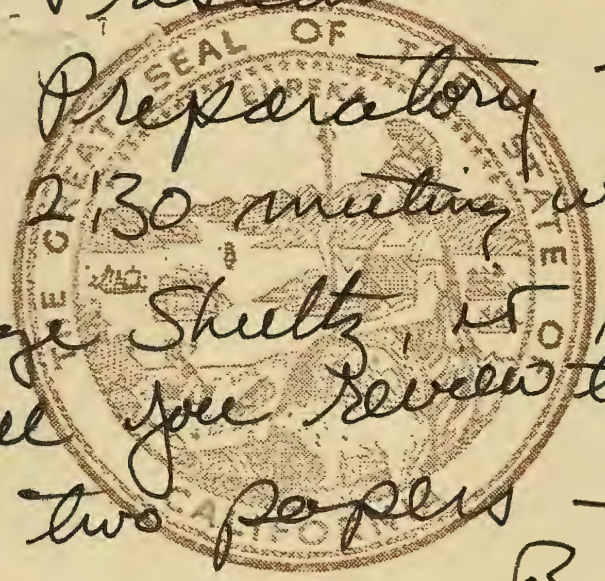 Preparatory
2:30 meeting
Shultz, it
you review
two papers —
THE GREAT SEAL OF THE STATE OF CALIFORNIA
EUREKA